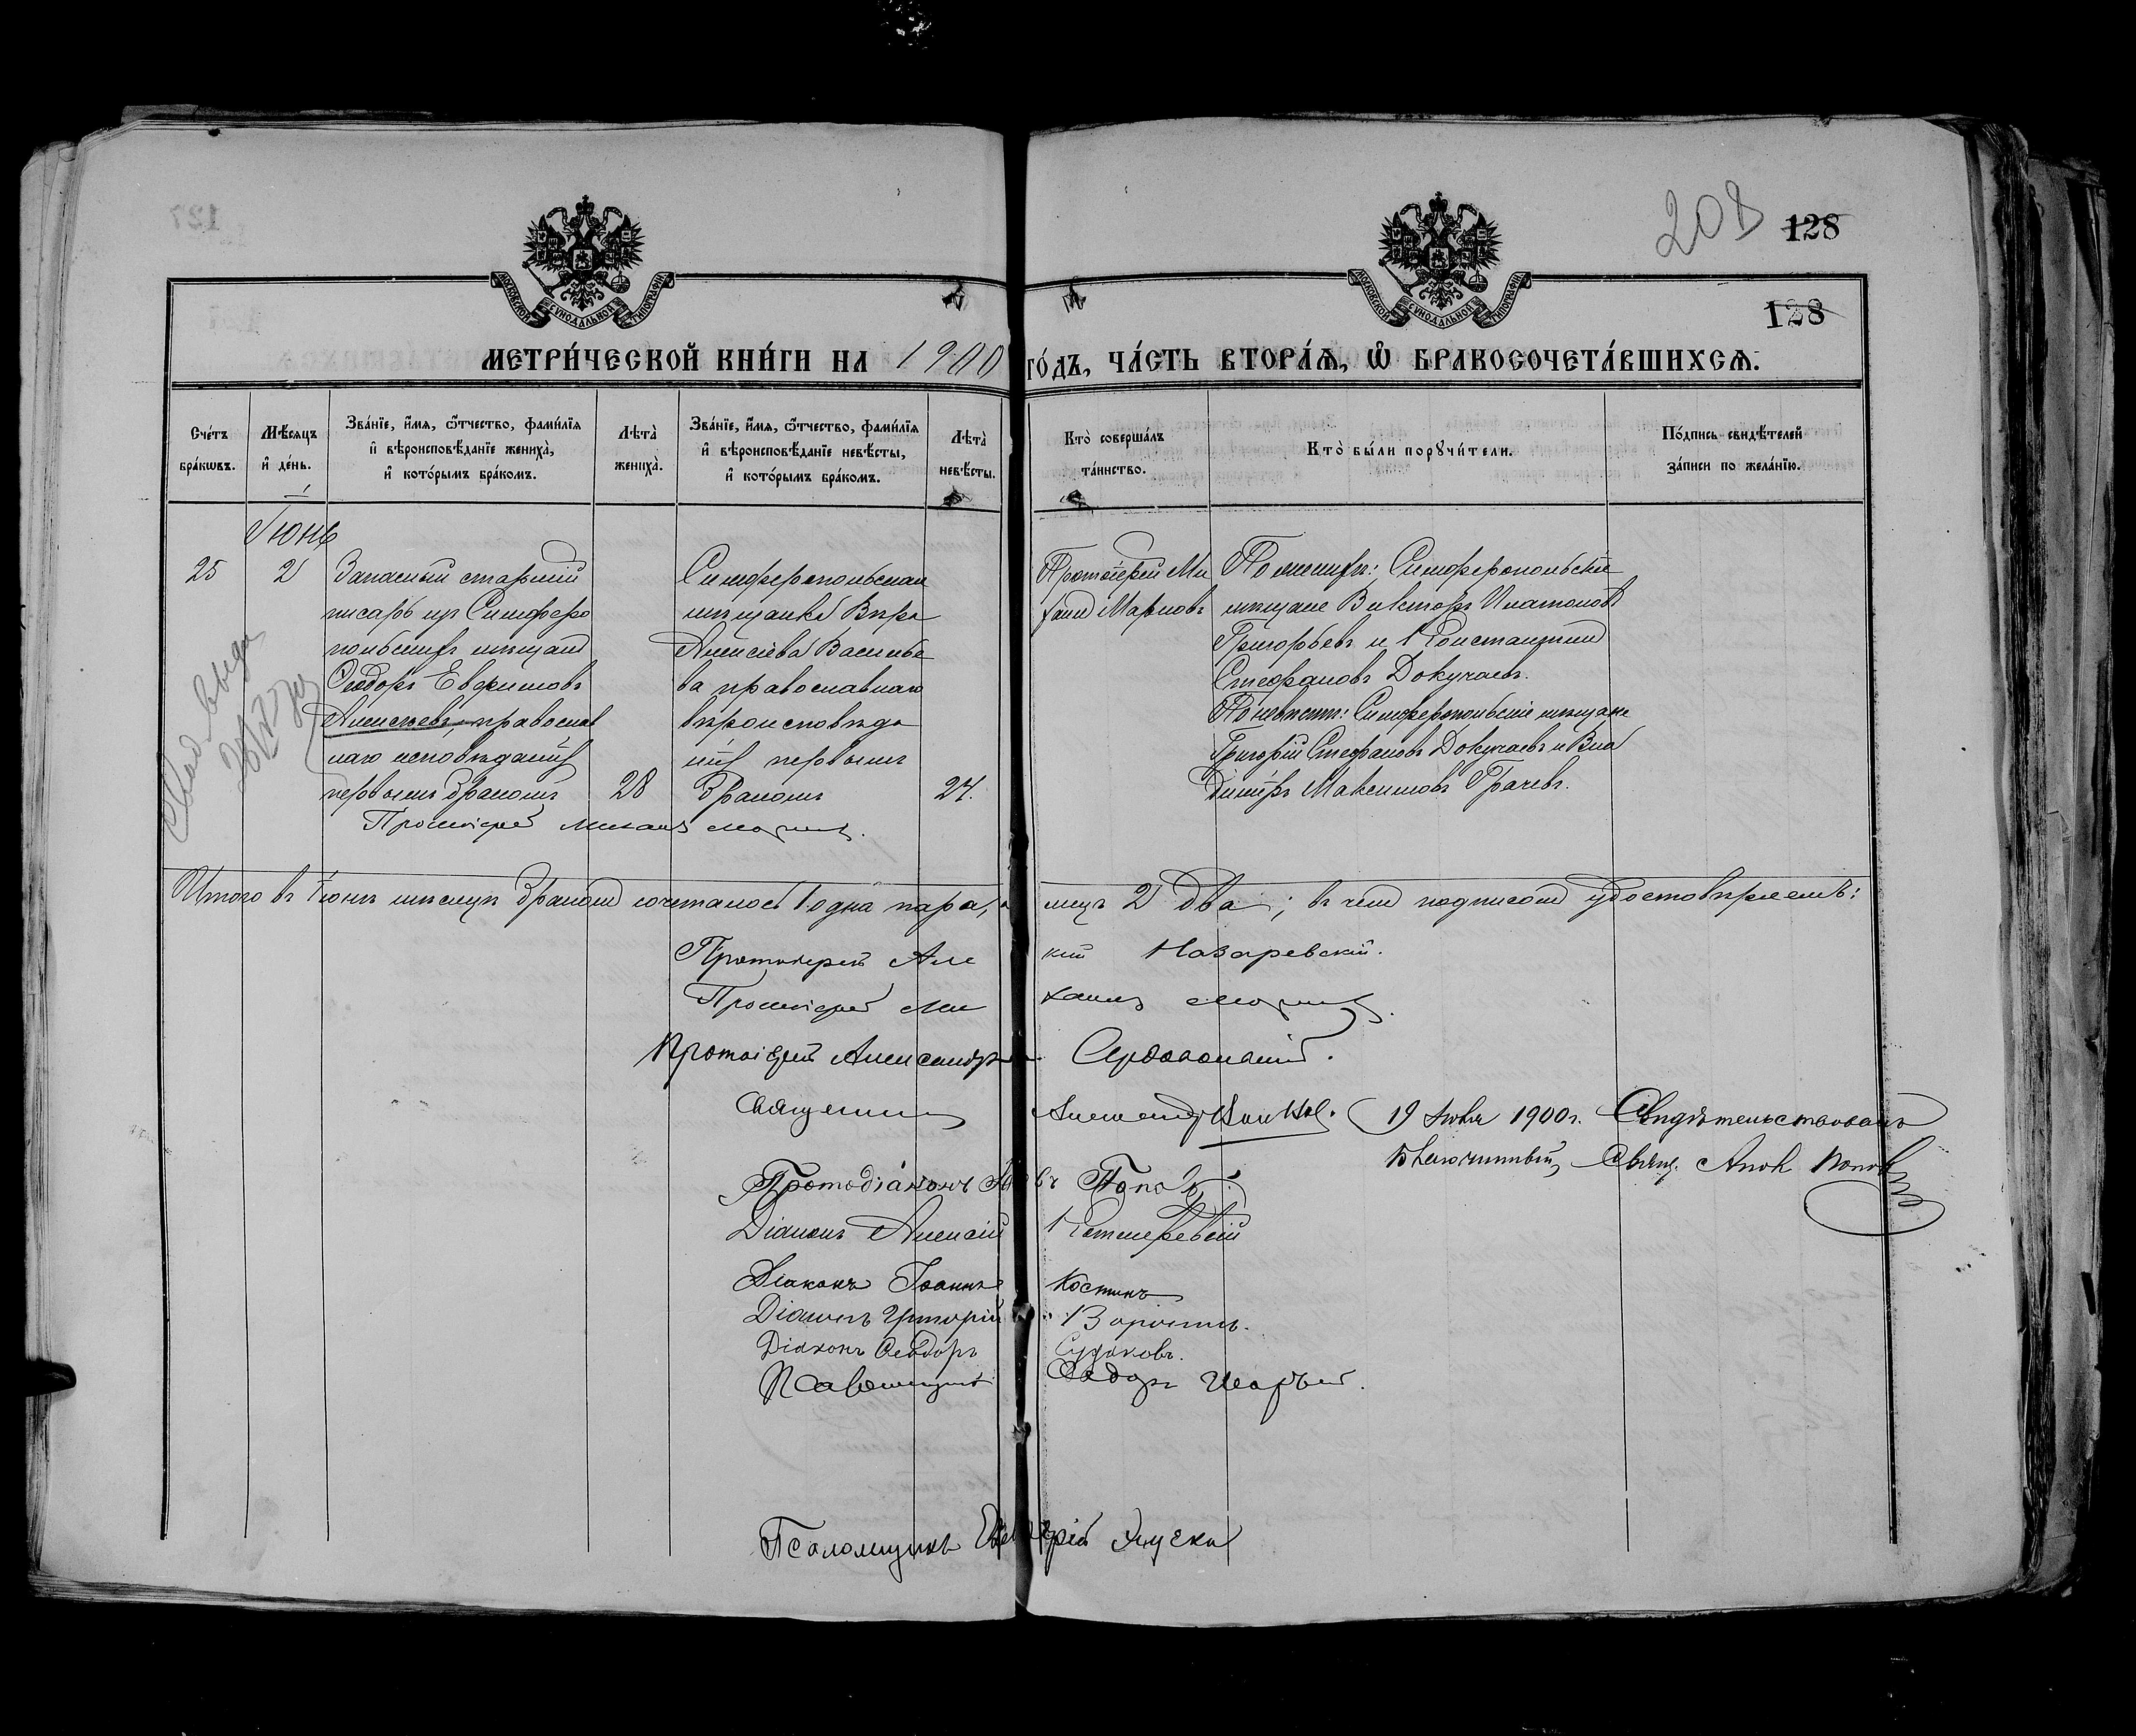 208 128
128
МОСКОВСКОЙ СѴНОДАЛЬНОЙ ТИПОГРАФІИ
МОСКОВСКОЙ СѴНОДАЛЬНОЙ ТИПОГРАФІИ
МЕТРИ́ЧЕСКОЙ КНИ́ГИ НА 1900 ГО́ДЪ, ЧА́СТЬ ВТОРА́Ѧ, Ѽ БРАКОСОЧЕТА́ВШИХСѦ.
Сче́тъ бра́кѡвъ.
Мѣ́сяцъ и҆ де́нь.
Зва́нїе, и҆́мѧ, ѻ҆́тчество, фами́лїѧ и҆ вѣроисповѣ́данїе жениха̀, и҆ кото́рымъ бра́комъ.
Лѣта̀ жениха̀.
Зва́нїе, и҆́мѧ, ѻ҆́тчество, фами́лїѧ и҆ вѣроисповѣ́данїе невѣ́сты, и҆ кото́рымъ бра́комъ.
Лѣта̀ невѣ́сты.
Кто̀ соверша́лъ та́инство.
Кто̀ бы́ли порꙋчи́тели.
По́дпись свидѣ́телей за́писи по жела́нїю.
Іюнь
25
2
Запасный старшій
писарь изъ Симферо
польскихъ мѣщанъ
Ѳеодоръ Евфимовъ
Алексѣевъ, православ
наго исповѣданія,
первымъ бракомъ
28
Симферопольская
мѣщанка Вѣра
Алексіева Василье
ва православнаго
вѣроисповѣда
нія, первымъ
бракомъ
24.
Протоіерей Ми
хаилъ Марковъ
По женихѣ: Симферопольскіе
мѣщане Викторъ Платоновъ
Григорьевъ и Константинъ
Стефановъ Докучаевъ.
По невѣстѣ: Симферопольскіе мѣщане
Григорій Стефановъ Докучаевъ и Вла
диміръ Максимовъ Грачевъ.
Протоіерей Михаилъ Марковъ.
Итого въ Іюнѣ мѣсяцѣ бракомъ сочеталось 1 одна пара, лицъ 2 два; въ чемъ подписомъ удостовѣряемъ:
Протоіерей Але кій Назаревскій.
Протоіерей Ми хаилъ Марковъ.
Протоіерей Александръ Сердобольскій.
Священникъ Александръ
19 1900 г. Свидѣтельствовалъ
Благочинный, Свящ. Попов
Протодіаконъ Попов
Діаконъ Алексій
Діаконъ Іоаннъ Костинъ
Діаконъ Григорій
Діаконъ Ѳеодоръ Судаковъ.
Псаломщикъ Ѳедоръ
Псаломщикъ